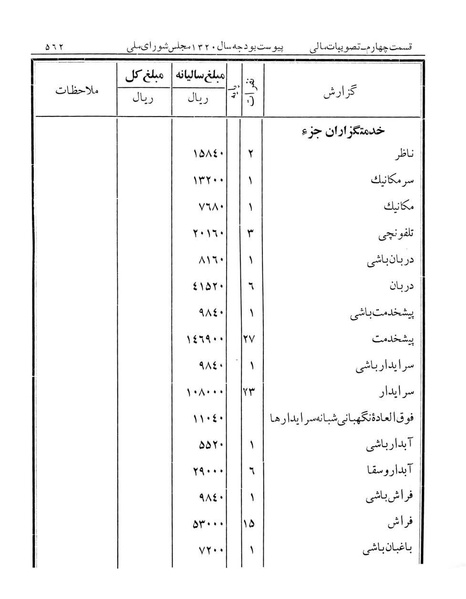 قسمت چهارم_تصویبات مالی پیوست بودجه سال ۱۳۲۰ مجلس شورای ملی ۵۶۲
گزارش نفرات پایه مبلغ سالیانه ریال مبلغ کل ریال ملاحظات
خدمتگزاران جزء
ناظر ۲ ۱۵۸۴۰
سر مکانیك ۱ ۱۳۲۰۰
مکانیك ۱ ۷۶۸۰
تلفونچی ۳ ۲۰۱۶۰
دربان باشی ۱ ۸۱۶۰
دربان ۶ ۴۱۵۲۰
پیشخدمت باشی ۱ ۹۸۴۰
پیشخدمت ۲۷ ۱۴۶۹۰۰
سرایدار باشی ۱ ۹۸۴۰
سرایدار ۲۳ ۱۰۸۰۰۰
فوق العادهٔ نگهبانی شبانه سرایدارها ۱۱۰۴۰
آبدار باشی ۱ ۵۵۲۰
آبدار و سقا ۶ ۲۹۰۰۰
فراش باشی ۱ ۹۸۴۰
فراش ۱۵ ۵۳۰۰۰
باغبان باشی ۱ ۷۲۰۰